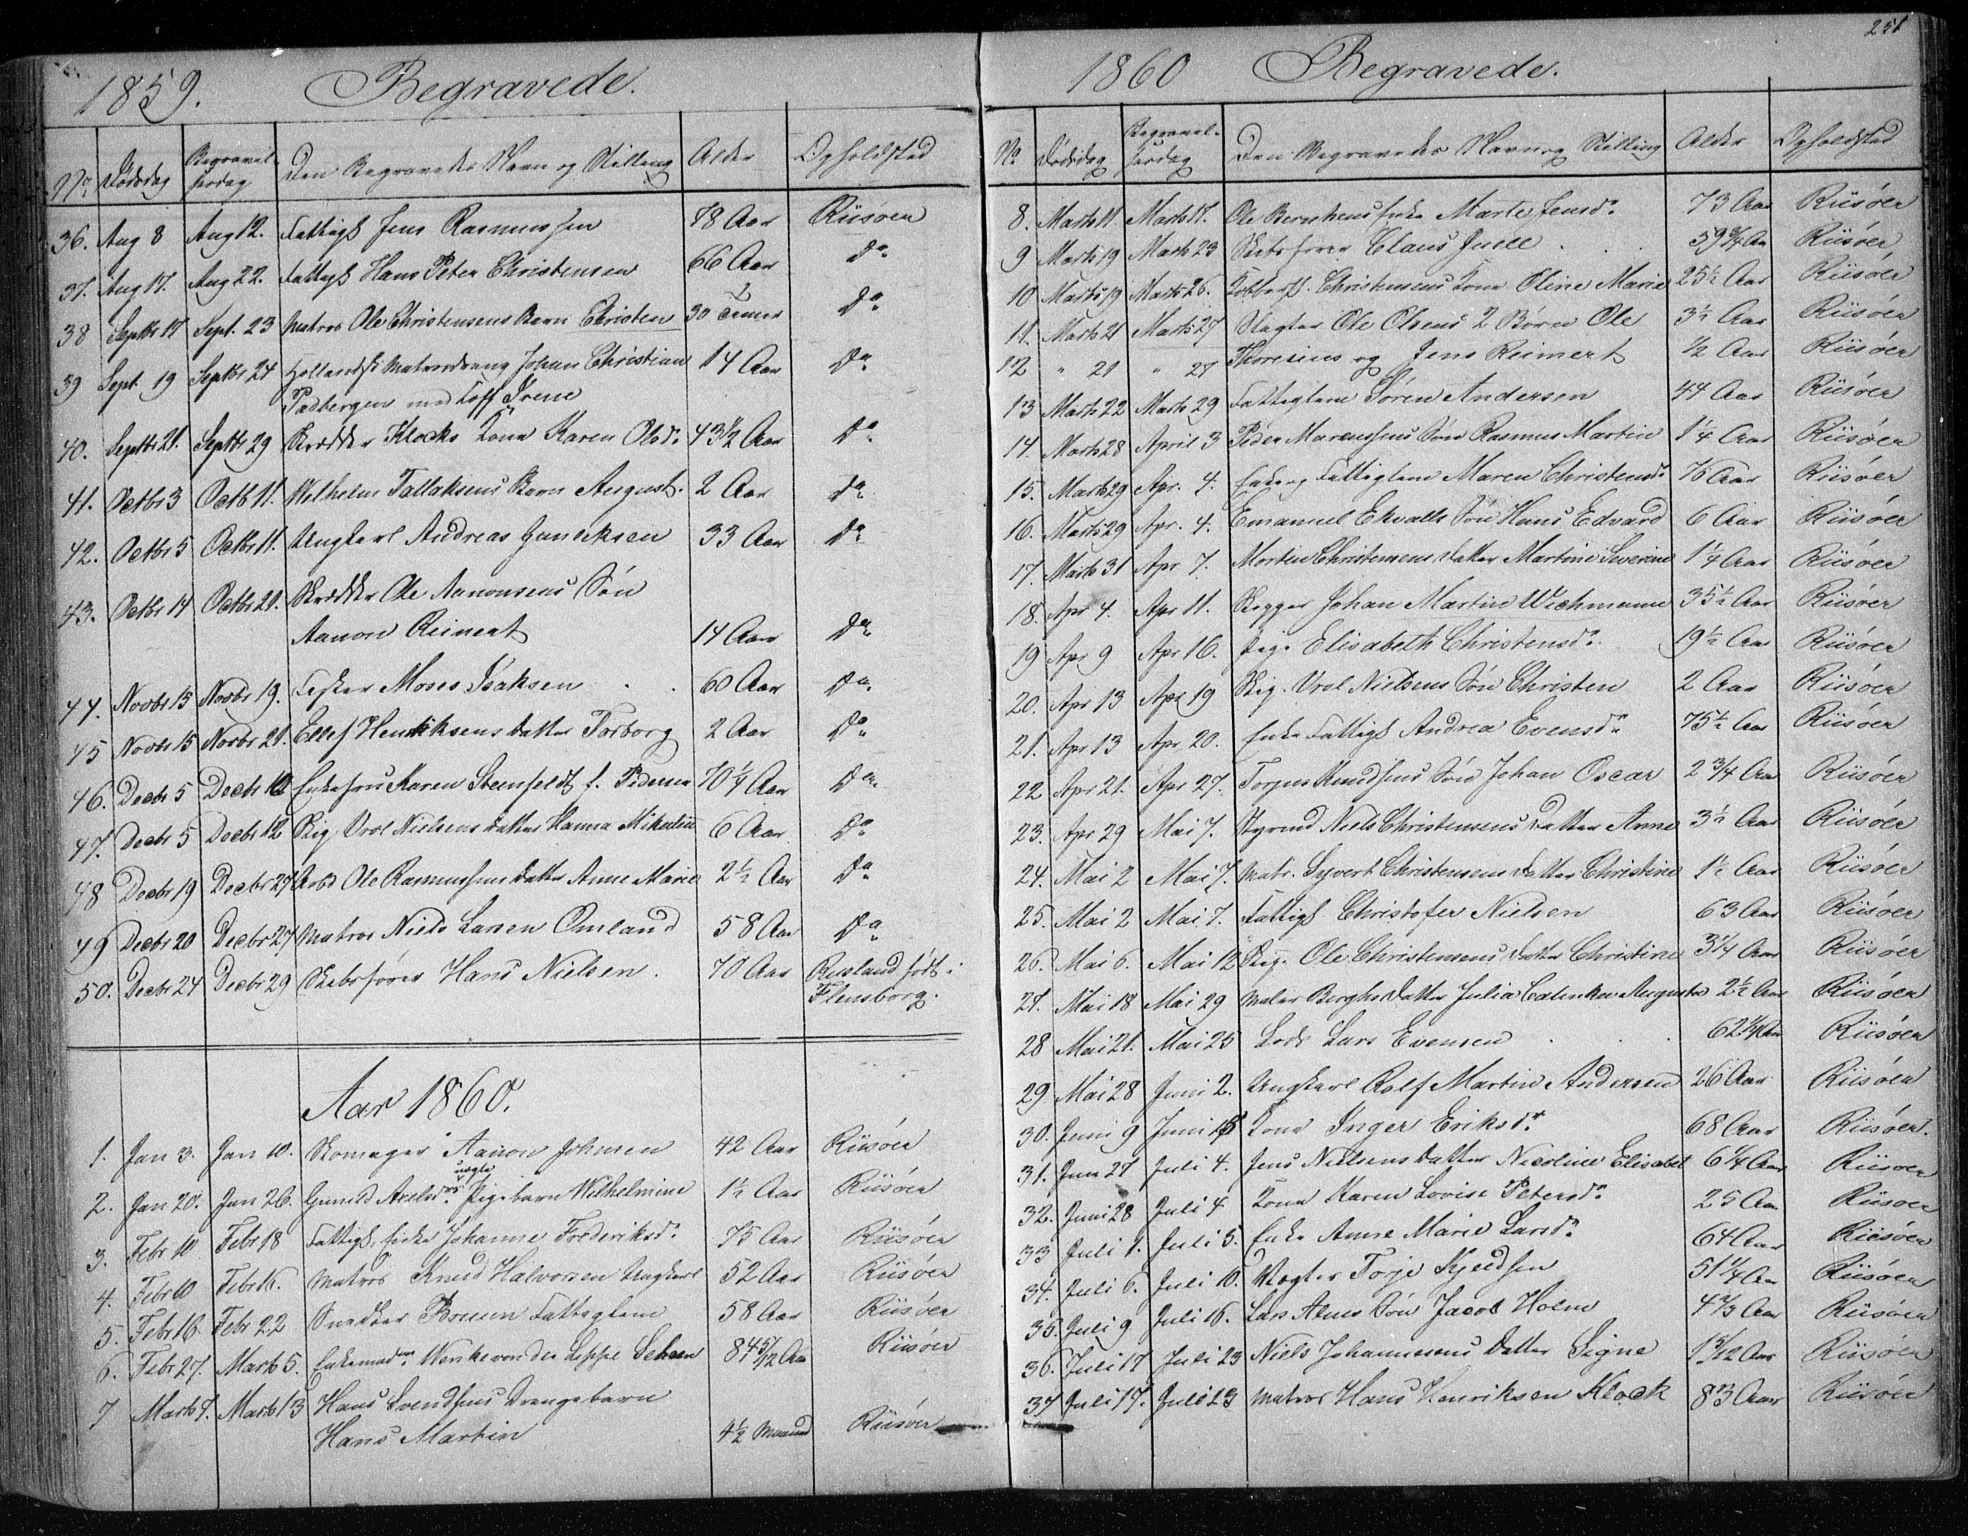 1859. Begravede.
No. Dødsdag Begravelsesdag Den Begravedes Navn og Stilling Alder Opholdsted
36. Aug 8 Aug 12. Fattigl Jens Rasmussen 78 Aar Riisøer
37. Aug 17. Aug 22. Fattigl Hans Peter Christensen 66 Aar Do
38 Septbr 17 Sept. 23 Matros Ole Christensens Barn Christen 30 Timer Do
39 Sept. 19 Septbr 24 Hollandsk Matrosdreng Johan Christian 14 Aar Do
Padbergen med Koff Irene
40. Septbr 21. Septbr 29 Skrædder Klocks Kone Karen Olsd. 43 1/2 Aar Do
41. Octbr 3 Octb 11. Wilhelm Tallaksens Barn August. 2 Aar Do
42. Octbr 5 Octbr 11. Ungkarl Andreas 33 Aar Do
43. Octbr 14 Octbr 21. Skrædder Ole Aanonsens Søn
Aanon Reinert 14 Aar Do
44. Novbr 13 Novbr 19. Fisker Moses Isaksen 60 Aar Do
45 Novbr 15 Novbr 21. Ellef Henriksens Datter Torborg 2 Aar Do
46. Decbr 5 Decbr 12 Enkefru Karen Steenfeldt f. 70 1/4 Aar Do
47. Decbr 5 Decbr 12 Rig. Urol Nielsens Datter Hanna 6 Aar Do
48 Decbr 19 Decbr 27 Ole Rasmussens Datter Anne Marie 2 1/2 Aar Do
49 Decbr 20 Decbr 27 Matros Niels Larsen Omland 58 Aar Do
50. Decbr 24 Decbr 29 Skibsfører Hans Nielsen. 70 Aar Rusland født i
Flensborg.
Aar 1860.
1. Jan 3. Jan 10. Skomager Aanon Johnsen 42 Aar Riisøer
2. Jan 20. Jan 26. Gunild Axelsd. uægte Pigebarn Wilhelmine 1 1/2 Aar Riisøer
3. Febr 10 Febr 18 Fattigl. Enke Johanne Frederiksd. 75 Aar Riisøer
4. Febr 10 Febr 16. Matros Knud Halvorsen Ungkarl 52 Aar Riisøer
5. Febr 16. Febr 22 Snedker Fattiglem 58 Aar Riisøer
6. Febr 27. Marts 5. Enkemad. Wenke von der Lippe 84 5/12 Aar Riisøer
7 Marts 7. Marts 13 Hans Svendsens Drengebarn
Hans Martin 4 1/2 Maaned Riisøer
251
1860 Begravede.
No Dødsdag Begravelsesdag Den Begravedes Navn og Stilling Alder Opholdsted
8. Marts 11. Marts 17. Ole Enke Marte Jensd. 73 Aar Riisøer
9 Marts 19 Marts 23 Skibsfører Claus Juell 59 3/4 Aar Riisøer
10 Marts 19 Marts 26. Christensens Kone Oline Marie 25 1/2 Aar Riisøer
11. Marts 21 Marts 27 Slagter Ole Olsens 2 Børn Ole 3 1/2 Aar Riisøer
12 " 21 " 27 Thorsines og Jens Reinert 1/2 Aar Riisøer
13 Marts 22 Marts 29 Fattiglem Søren Andersen 44 Aar Riisøer
14. Marts 28 April 3 Peder Marcussens Søn Rasmus Martin 1 1/4 Aar Riisøer
15. Marts 29 Apr. 4. Enke og Fattiglem Maren Christensd. 76 Aar Riisøer
16. Marts 29 Apr. 4. Emanuel Ekvalls Søn Hans Edvard 6 Aar Riisøer
17. Marts 31 Apr 7. Morten Christensens Datter Martine Severine 1 1/4 Aar Riisøer
18. Apr 4. Apr 11. Rigger Johan Martin Wichmann 35 1/2 Aar Riisøer
19 Apr 9 Apr 16. Pige Elisabeth Christensd. 19 1/2 Aar Riisøer
20. Apr 13 Apr 19 Rig. Urol Nielsens Søn Christen 2 Aar Riisøer
21. Apr 13 Apr. 20. Enke Fattigl Andrea Evensd. 75 1/2 Aar Riisøer
22 Apr 21. Apr 27. Torjus Knudsens Søn Johan Oscar 2 3/4 Aar Riisøer
23. Apr 29 Mai 7. Styrmd Niels Christensens Datter Anne 3 1/2 Aar Riisøer
24. Mai 2 Mai 7. Matr. Syvert Christensens Datter Christine 1 1/2 Aar Riisøer
25. Mai 2 Mai 7. Fattigl Christofer Nielsen 63 Aar Riisøer
26. Mai 6. Mai 12 Rig. Ole Christensens Datter Christine 3 1/4 Aar Riisøer
27. Mai 18 Mai 29 Maler Berghs Datter Julia Cathinka Augusta 2 1/2 Aar Riisøer
28 Mai 21. Mai 25 Lods Lars Evensen 62 1/4 Aar Riisøer
29 Mai 28 Juni 2. Ungkarl Rolf Martin Andersen 26 Aar Riisøer
30. Juni 9 Juni 15 Kone Inger Eriksd. 68 Aar Riisøer.
31. Juni 27 Juli 4. Jens Nielsens Datter Nicoline Elisabet 6 1/4 Aar Riisøer
32. Juni 28 Juli 4 Kone Karen Lovise Petersd. 25 Aar Riisøer
33 Juli 1. Juli 5. Enke Anne Marie Larsd. 64 Aar Riisøer
34. Juli 6. Juli 10. Vægter Torje Kjeldsen 51 1/4 Aar Riisøer
35. Juli 9 Juli 16. Lars Alms Søn Jacob Holm 4 2/3 Aar Riisøer
36. Juli 17 Juli 23 Niels Johannesens Datter Signe 1 3/12 Aar Riisøer
37 Juli 17. Juli 23 Matros Hans Henriksen Klock 83 Aar Riisøer